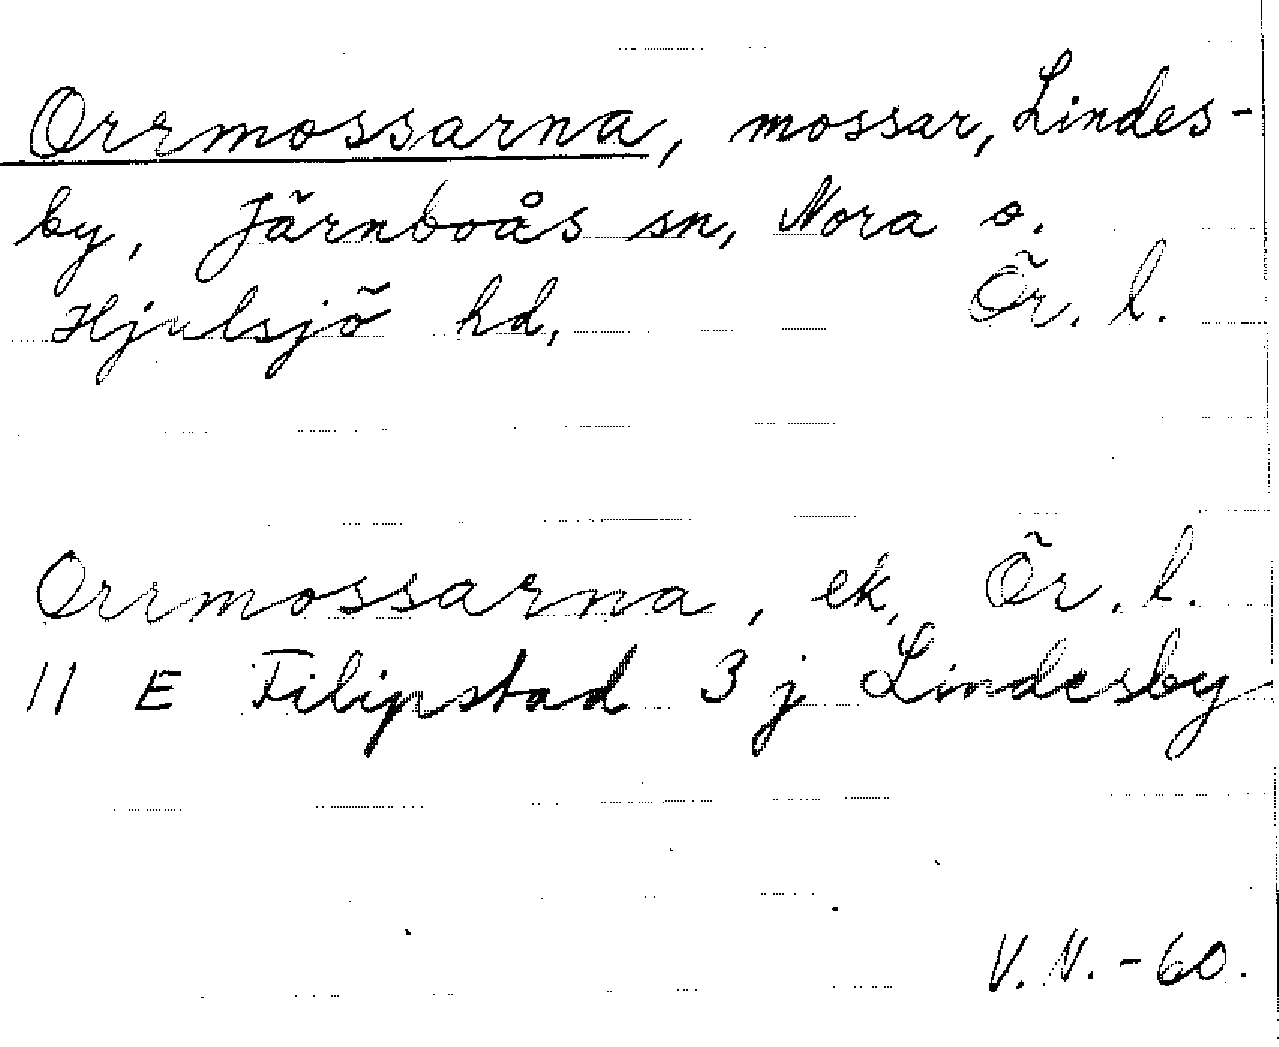 Orrmossarna, mossar, Lindes-
by, Järnboås sn, Nora o.
Hjulsjö hd, Ör. l.
Orrmossarna, ek, Ör. l.
11 E Filipstad 3 j Lindesby
V.N. -60.